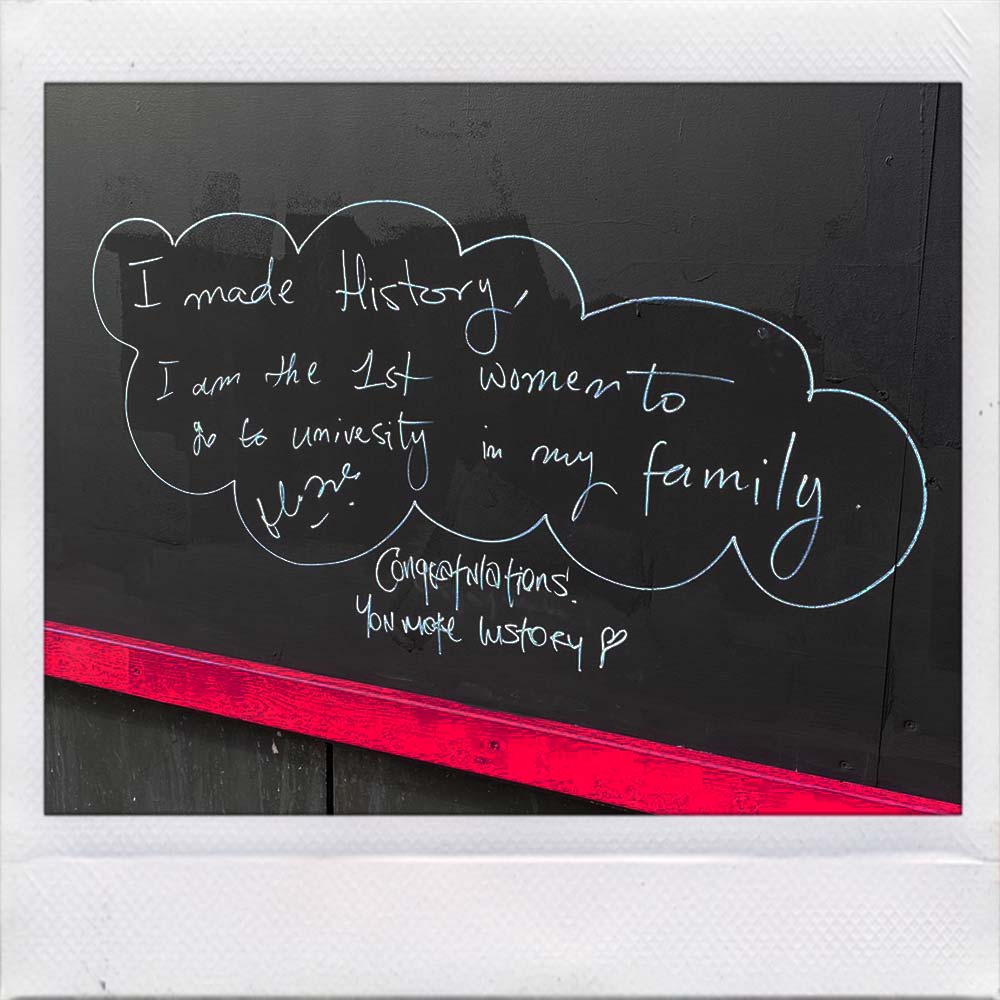 I made History,
I am the 1st women to
go to univesity in my family.
Congratulations!
You make history